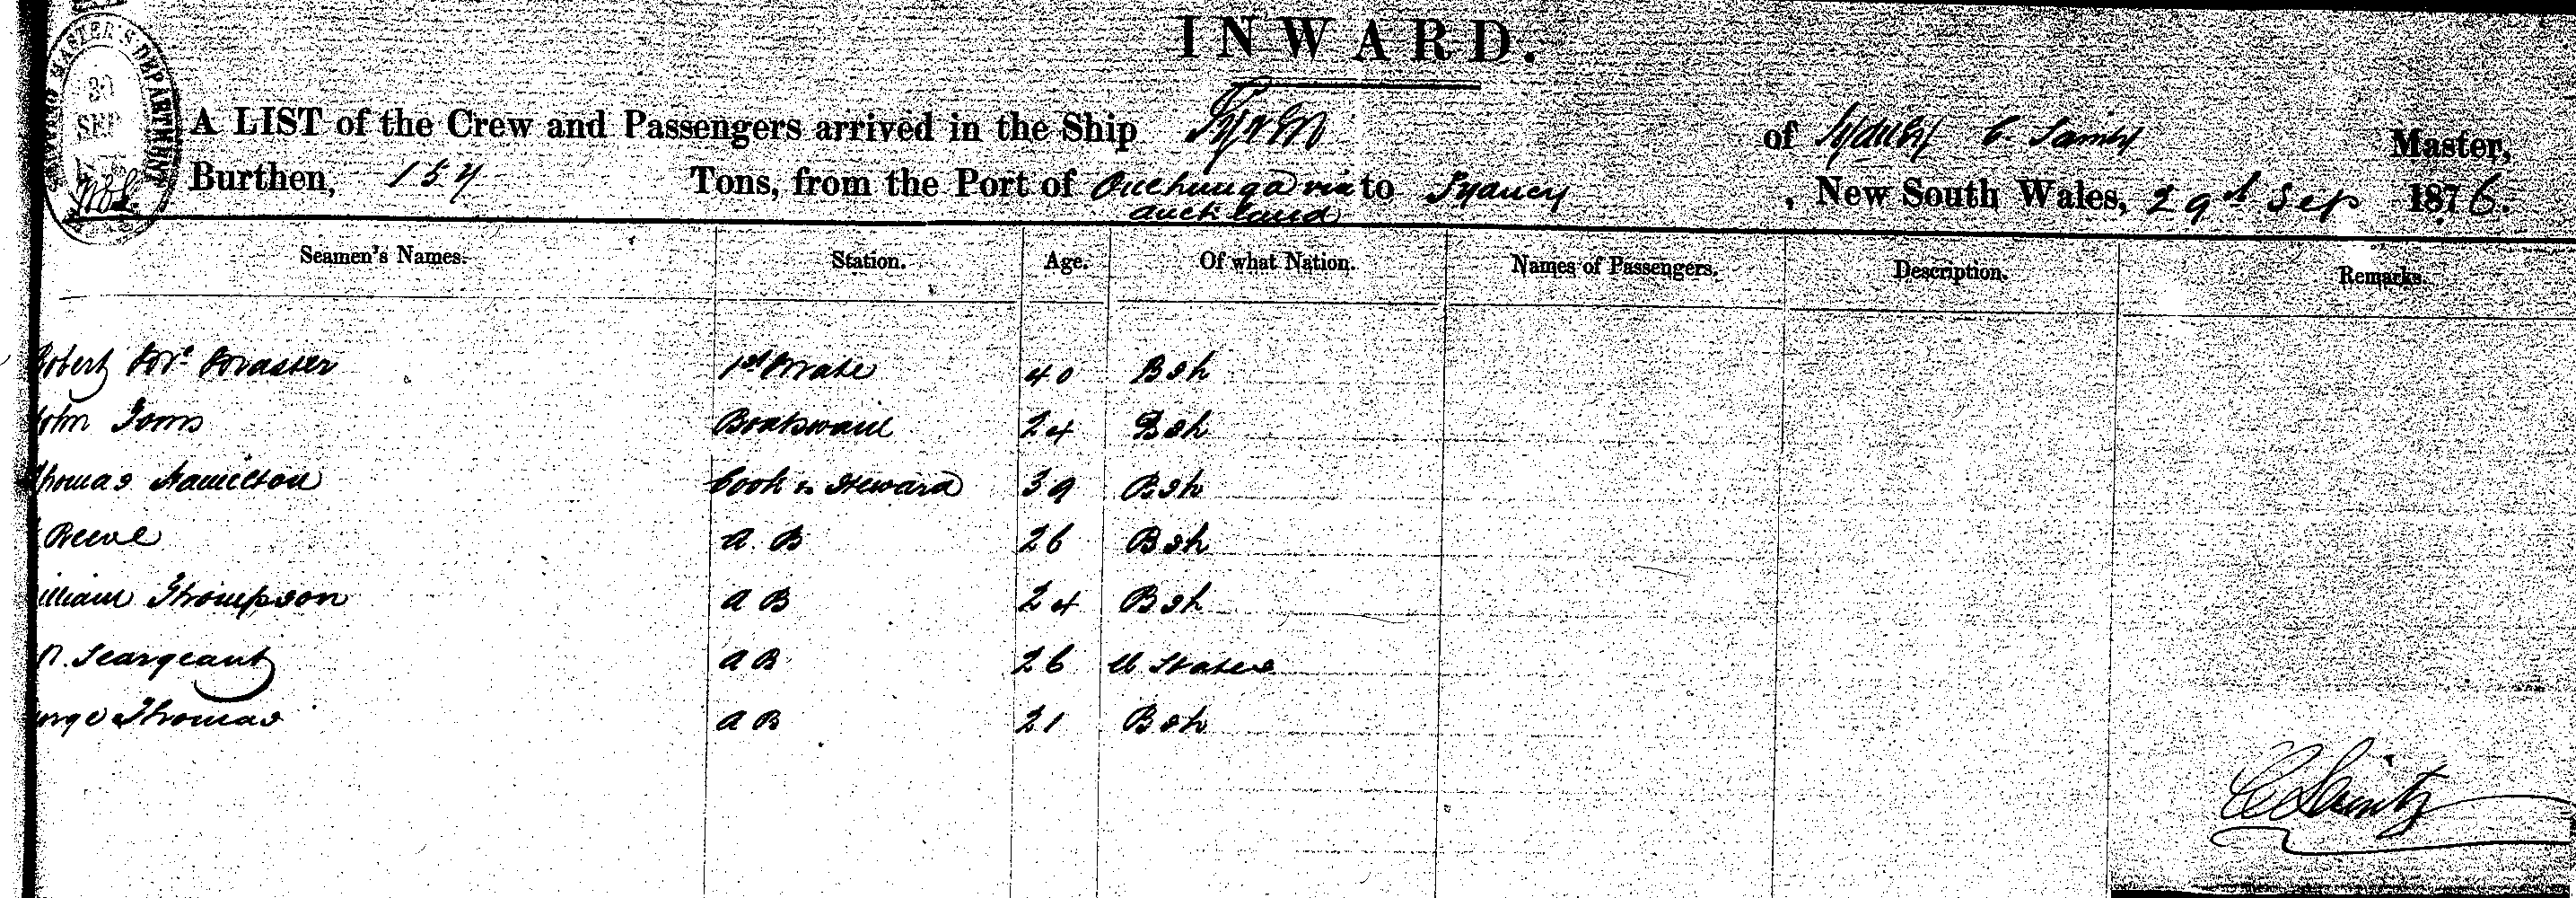 INWARD.
SHIPPING MASTER'S DEPARTMENT
30
SEP
A LIST of the Crew and Passengers arrived in the Ship of Sydney C. Master,
Burthen, 157 Tons, from the Port of Onehunga via to Sydney, New South Wales, 29th Sep 1876.
Auckland
Seamen's Names. Station. Age. Of what Nation. Names of Passengers. Description. Remarks.
Robert Mc Master 1st Mate 40 Bsh
John Toms Boatswain 24 Bsh
Thomas Hamilton Cook & Steward 39 Bsh
Reeve A. B 26 Bsh
illiam Thompson A B 24 Bsh
Seargeant A B 26 U States
orge Thomas A B 21 Bsh